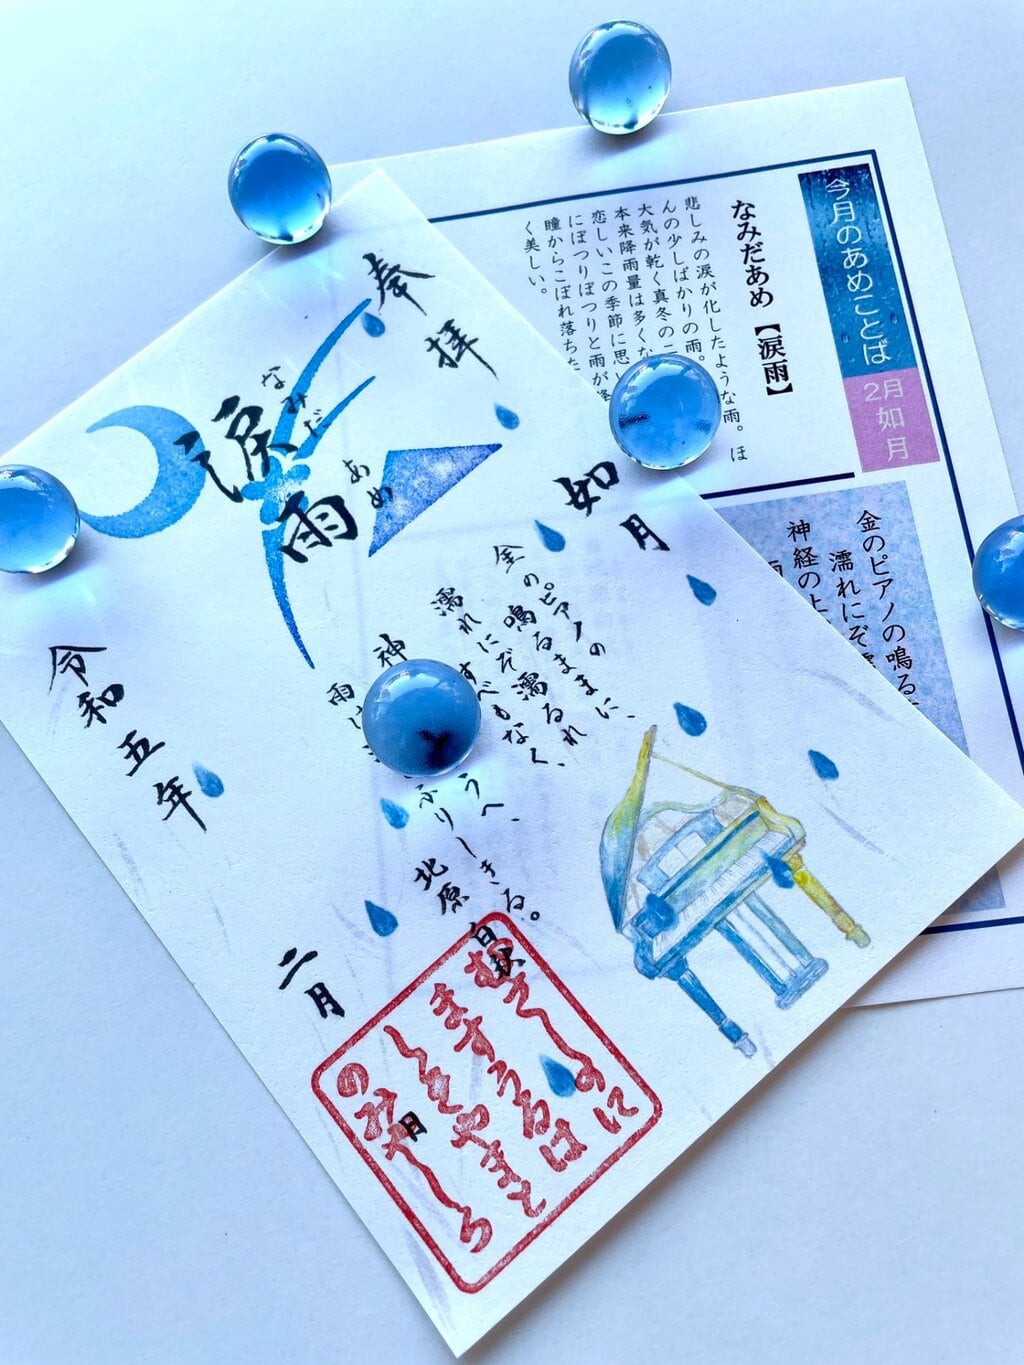 奉拝
如月
なみだあめ
涙雨
金のピアノの
鳴るままに、
濡れにぞ濡るれ、
すべもなく、
神
うへ、
雨は
ふりしきる。
北原白秋
令和五年
二月
日
むさしのに
ますうるは
しきやまと
のみやしろ
今月のあめことば
2月
如月
なみだあめ【涙雨】
悲しみの涙が化したような雨。ほ
んの少しばかりの雨。
大気が乾く真冬のこ
本来降雨量は多くな
恋しいこの季節に思い
にぽつりぽつりと雨が降
瞳からこぼれ落ちた
く美しい。
金のピアノの鳴る
濡れにぞ濡
神経の上
雨